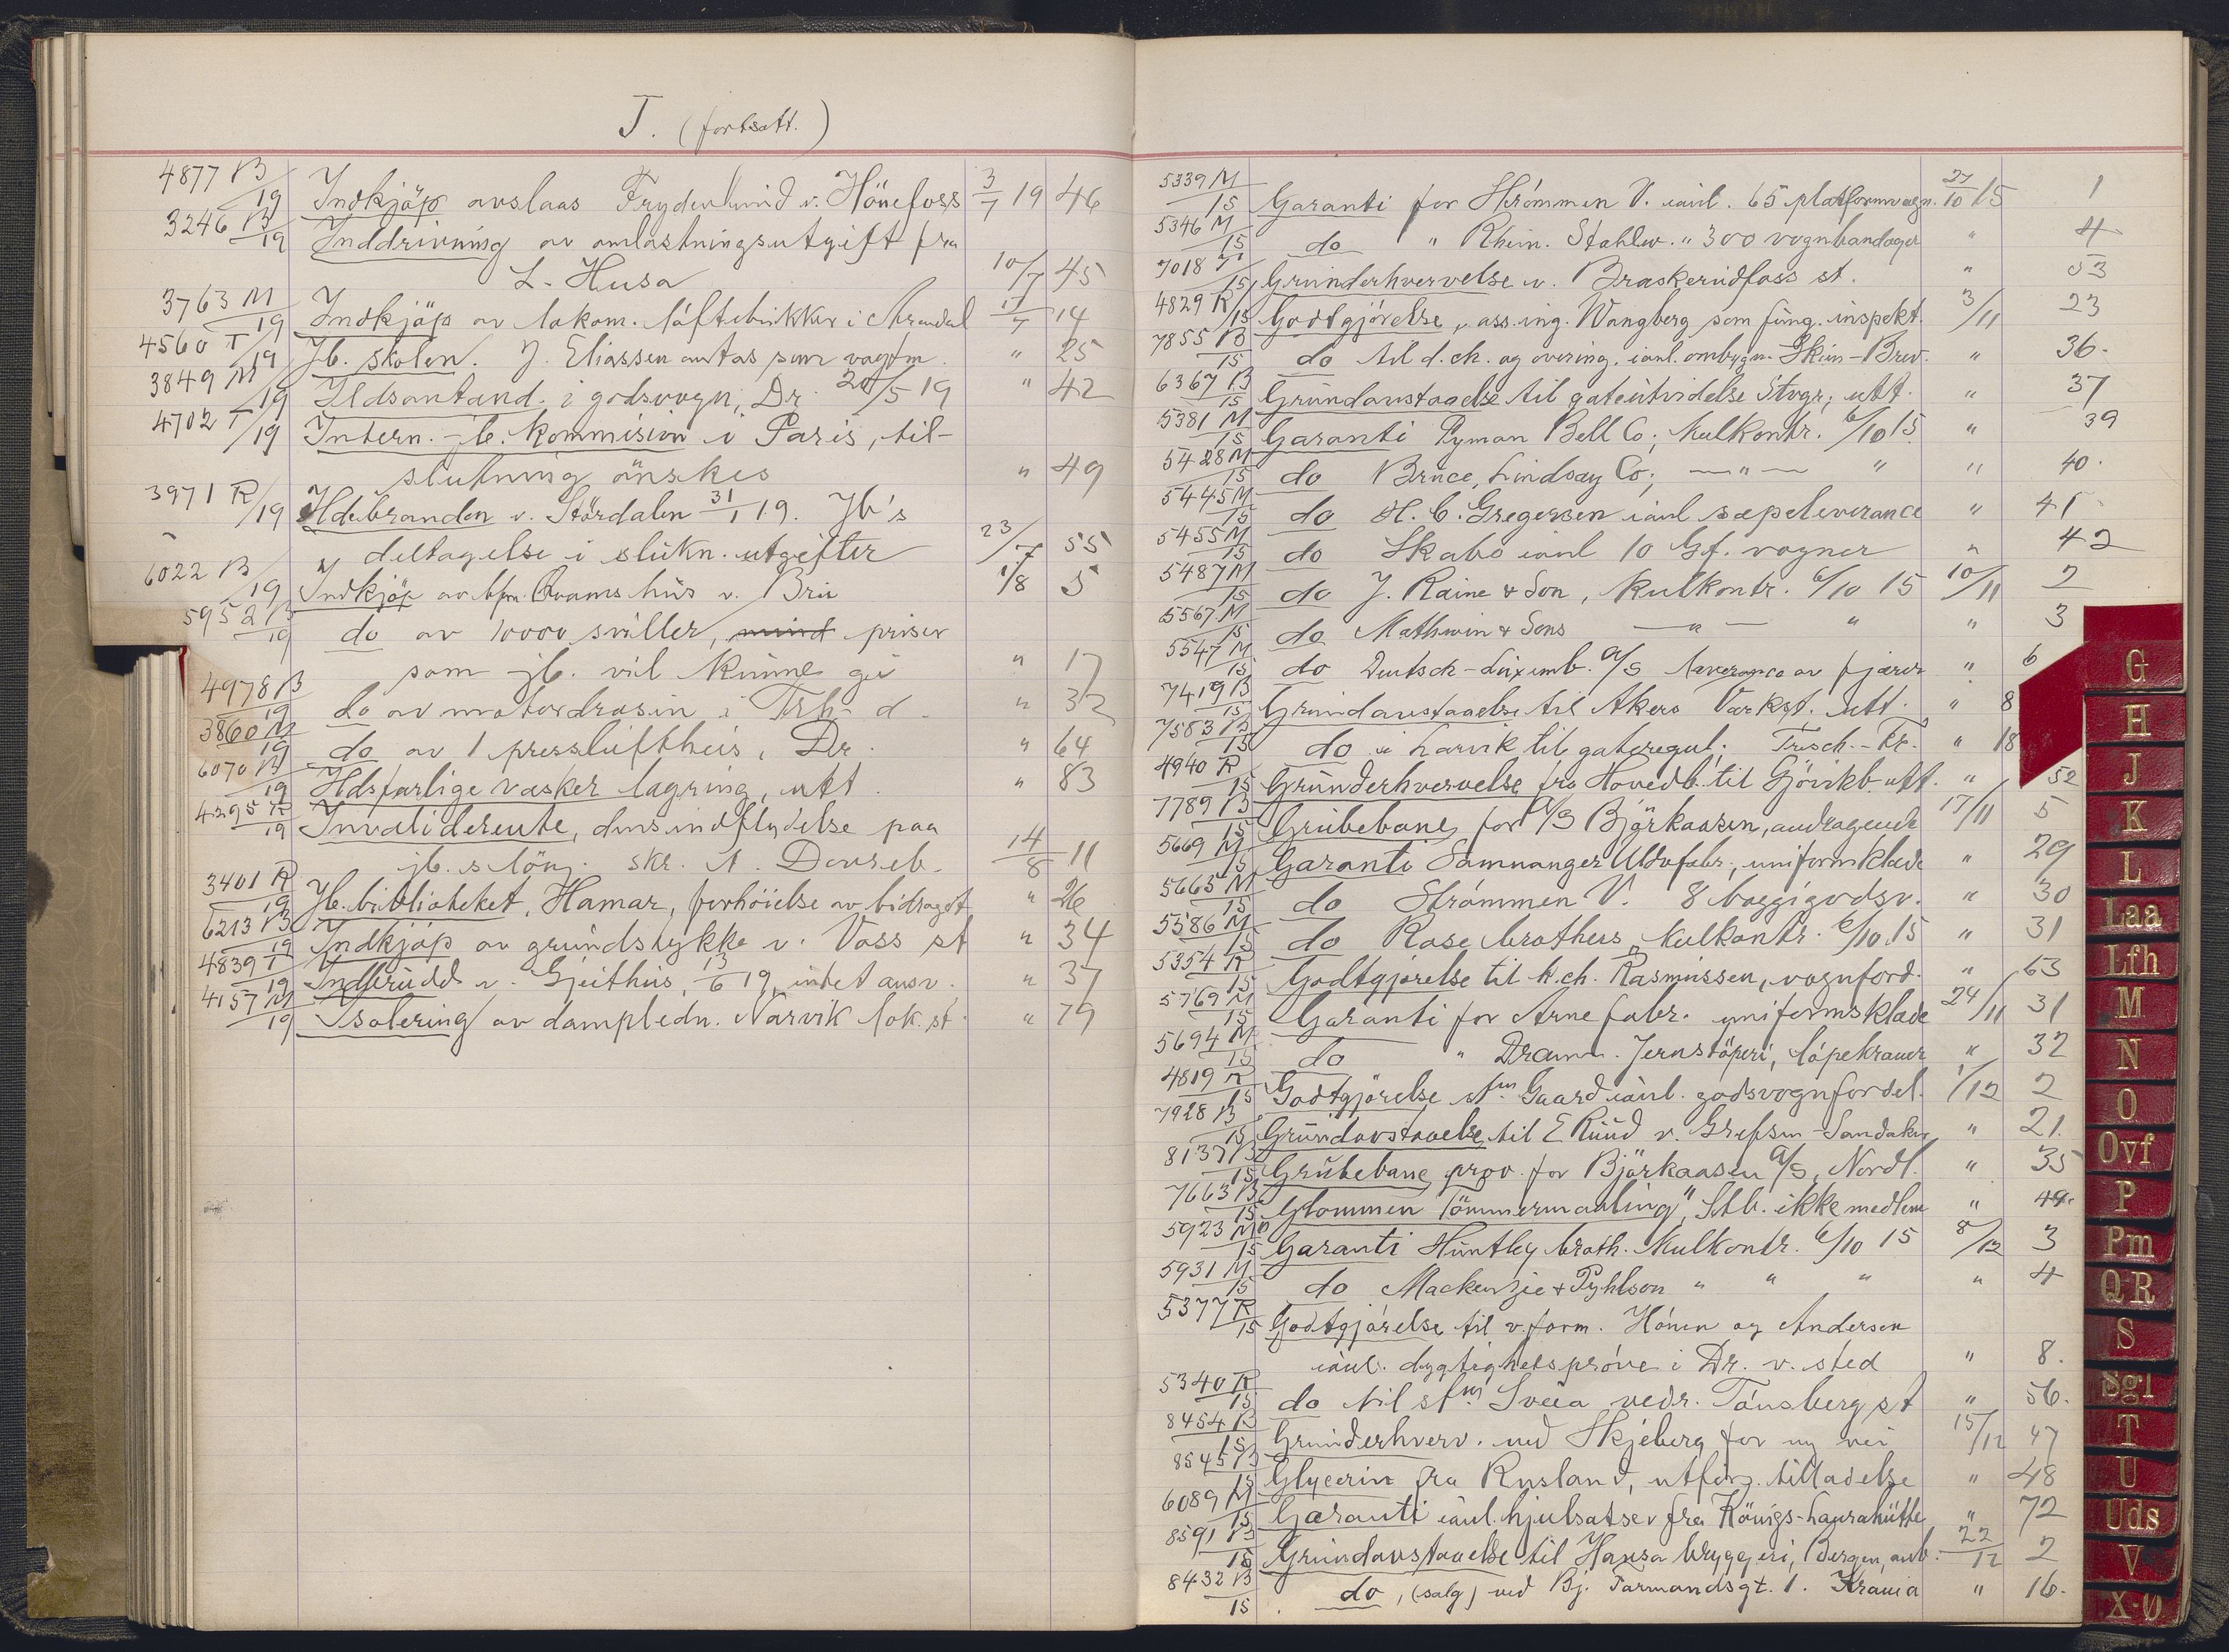 J. (fortsatt.)
4877 B/19 Indkjöp avslaas Frydenlund v. Hönefoss 3/7 19 46
3246 B/19 Inddrivning av omlastningsutgift fra
L. Husa 10/7 45
3763 M/19 Indkjöp av lokom. löftebukker i Arendal 17/7 14
4560 T/19 Jb. skolen. J. Eliassen antas som vagtm. " 25
3849 M/19 Ildsantænd. i godsvogn, Dr. 20/5 19 " 42
4702 T/19 Intern. jb. kommision i Paris, til-
slutning önskes " 49
3971 R/19 Ildebranden v. Stördalen 31/1 19. Jb's
deltagelse i slukn. utgifter 23/7 55
6022 B/19 Indkjöp av bfm. Qvams hus v. Bru 1/8 5
5952 B/19 do av 10000 sviller, mind priser
som jb. vil kunne gi " 17
4978 B/19 do av motordræsin i Trh. d. " 32
3860 M/19 do av 1 pressluftheis, Dr. " 64
6070 B/19 Ildsfarlige væsker lagring, utt. " 83
4295 R/19 Invaliderente, dens indflydelse paa
jb.s lönj. skr. N. Dovreb. 14/8 11
3401 R/19 Jb. biblioteket, Hamar, forhöielse av bidraget " 26
6213 B/19 Indkjöp av grundstykke v. Voss st " 34
4839 T/19 Indbrudd v. Gjeithus, 13/6 19, intet ansv. " 37
4157 M/19 Isolering av dampledn. Narvik lok. st. " 79
5339 M/15 Garanti for Strömmen V. ianl. 65 platformvogn. 27/10 15 1
5346 M/15 do " Rhein. Stahlw. " 300 vognbandager " 4
7018 T/15 Grunderhvervelse v. Braskerudfoss st. " 53
4829 R/15 Godtgjörelse, ass. ing. Wangberg som fung. inspekt. 3/11 23
7855 B/15 do til d. ch. og overing. ianl. ombygn. Skien-Brev. " 36.
6367 B/15 Grundavstaaelse til gateutvidelse Stvgr; utt. " 37
5381 M/15 Garanti Pyman Bell Co; kulkontr. 6/10 15 " 39
5428 M/15 do Bruce, Lindsay Co; — " — " " 40.
5445 M/15 do H. C. Gregersen ianl sæpeleverance " 41
5455 M/15 do Skabo ianl 10 Gf. vogner " 42
5487 M/15 do J. Raine & Son, kulkontr. 6/10 15 10/11 2
5567 M/15 do Mathwin & Sons — " — " " 3
5547 M/15 do Deutsch-Luxemb. A/S leverance av fjærer " 6
7419 B/15 Grundavstaaelse til Akers Værkst. utt. " 8
7583 B/15 do i Larvik til gateregul; Tresch.-Fr. " 18
4940 R/15 Grunderhvervelse fra Hovedb. til Gjövikb. utt. " 52
7789 B/15 Grubebane for A/S Björkaasen, andragende 17/11 5
5669 M/15 Garanti Samnanger Uldvfabr., uniformklæde " 29
5665 M/15 do Strömmen V. 8 boggigodsv. " 30
5586 M/15 do Rose brothers, kulkontr. 6/10 15 " 31
5354 R/15 Godtgjörelse til k.ch. Rasmussen, vognford. " 63
5769 M/15 Garanti for Arne fabr. uniformsklæde 24/11 31
5694 M/15 do " Dramm. Jernstöperi, löpekraner " 32
4819 R/15 Godtgjörelse stm. Gaard ianl. godsvognfordel. 1/12 2
7928 B/15 Grundavstaaelse til E Ruud v. Grefsen-Sandaker " 21.
8137 B/15 Grubebane prov. for Björkaasen A/S, Nordl. " 35
7663 B/15 Glommen Tömmermaaling", Stb. ikke medlem " 49.
5923 M/15 Garanti Huntley broth. kulkontr. 6/10 15 8/12 3
5931 M/15 do Mackenzie & Pyhlson " " " " 4
5377 R/15 Godtgjörelse til v.form. Hönen og Andersen
ianl. dygtighetspröve i Dr. v. sted " 8.
5340 R/15 do til stm. Sveia vedr. Tönsberg st " 56.
8454 B/15 Grunderhverv. ved Skjeberg for ny vei 15/12 47
8545 B/15 Glycerin fra Rusland, utförs. tilladelse " 48
6089 M/15 Garanti ianl. hjulsatser fra Königs-Laurahütte " 72
8591 B/15 Grundavstaaelse til Hansa bryggeri, Bergen, anb. 22/12 2
8432 B/15 do, (salg) ved Bj. Farmandsgt. 1. Krania " 16.
G
H
J
K
L
Laa
Lfh
M
N
O
Ovf
P
Pm
QR
S
Sgl
T
U
Uds
V
X-Ø